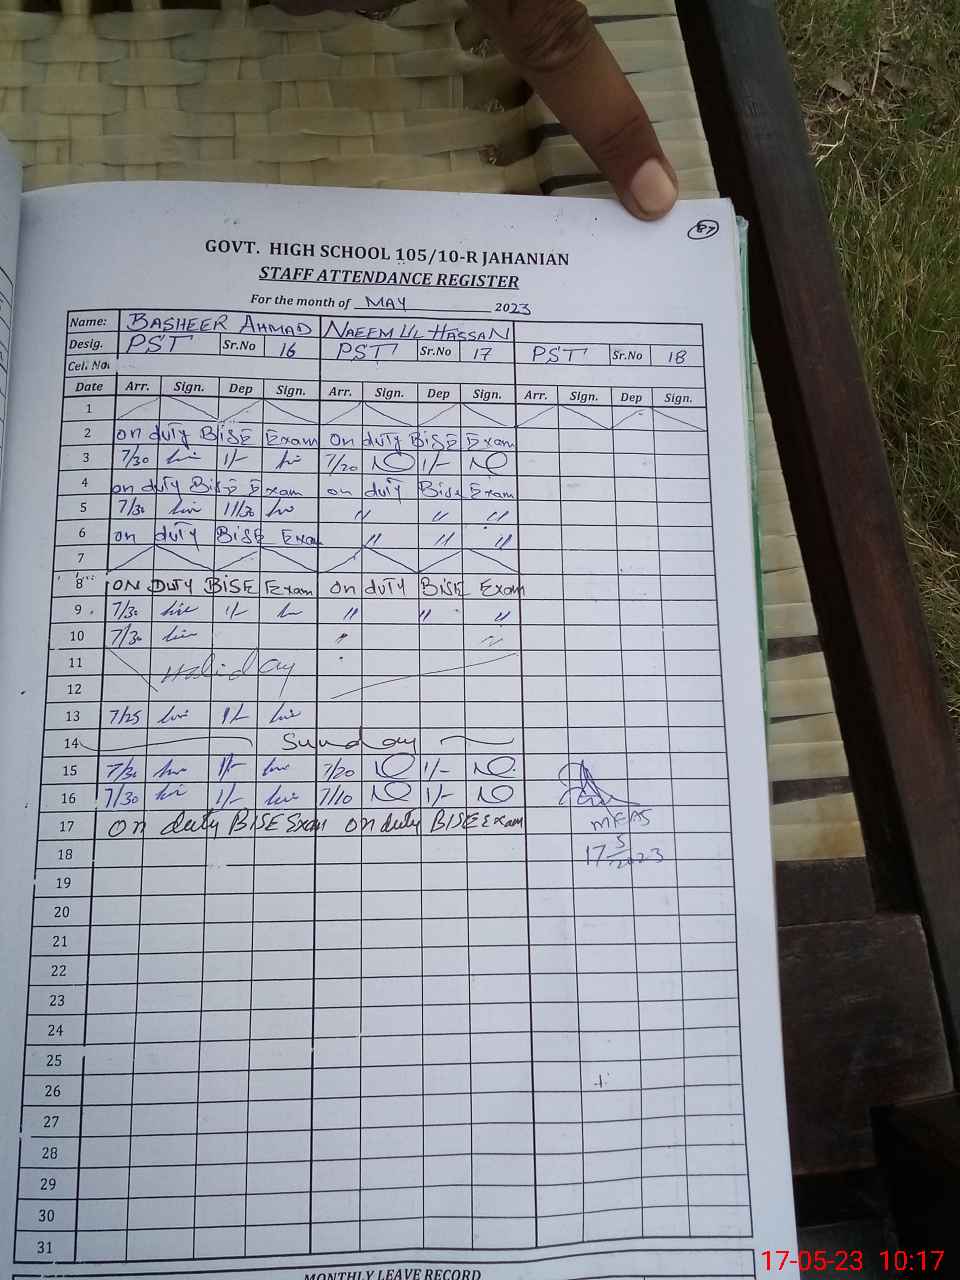 87
GOVT. HIGH SCHOOL 105/10-R JAHANIAN
STAFF ATTENDANCE REGISTER
For the month of MAY 2023
Name: BASHEER AHMAD NAEEM UL HASSAN
Desig. PST Sr.No 16 PST Sr.No 17 PST Sr.No 18
Cel. No.
Date Arr. Sign. Dep Sign. Arr. Sign. Dep Sign. Arr. Sign. Dep Sign.
1
2 on duty BISE Exam on duty BISE Exam
3 7/30 1/- 7/20 1/-
4 on duty BISE Exam on duty BISE Exam
5 7/30 11/30 " " "
6 on duty BISE Exam " " "
7
8 ON DUTY BISE Exam on duty BISE Exam
9 7/30 1/- " " "
10 7/30 " "
11 Holiday
12
13 7/25 1/-
14 Sunday
15 7/30 1/- 7/20 1/-
16 7/30 1/- 7/10 1/-
17 on duty BISE Exam on duty BISE Exam
18 17 5 2023
19
20
21
22
23
24
25
26
27
28
29
30
31
MONTHLY LEAVE RECORD
17-05-23 10:17